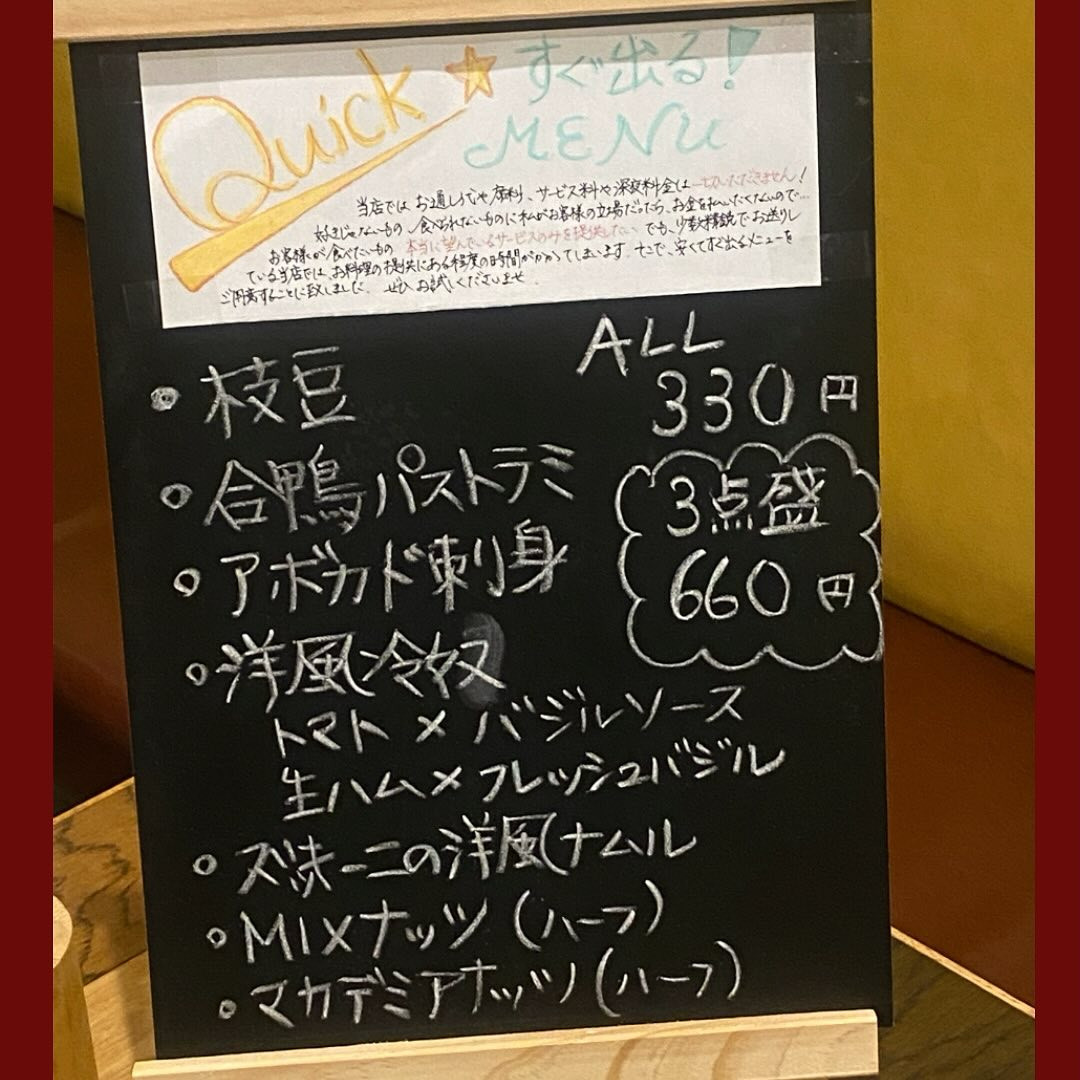 Quick★すぐ出る!
MENU
当店では、お通し代や席料、サービス料や深夜料金は一切いただきません!
好きじゃないもの、食べられないものに私がお客様の立場だったら、お金を払いたくないので…
お客様が食べたいもの 本当に望んでいるサービスのみを提供したい でも、少数精鋭でお送りし
ている当店では、お料理の提供にある程度の時間がかかってしまいます。そこで、安くてすぐ出るメニューを
ご用意することに致しました、ぜひお試しくださいませ.
ALL
330円
・枝豆
・合鴨パストラミ
3点盛
660円
・アボカド刺身
・洋風冷奴
トマト×バジルソース
生ハム×フレッシュバジル
・ズッキーニの洋風ナムル
・MIXナッツ(ハーフ)
・マカデミアナッツ(ハーフ)